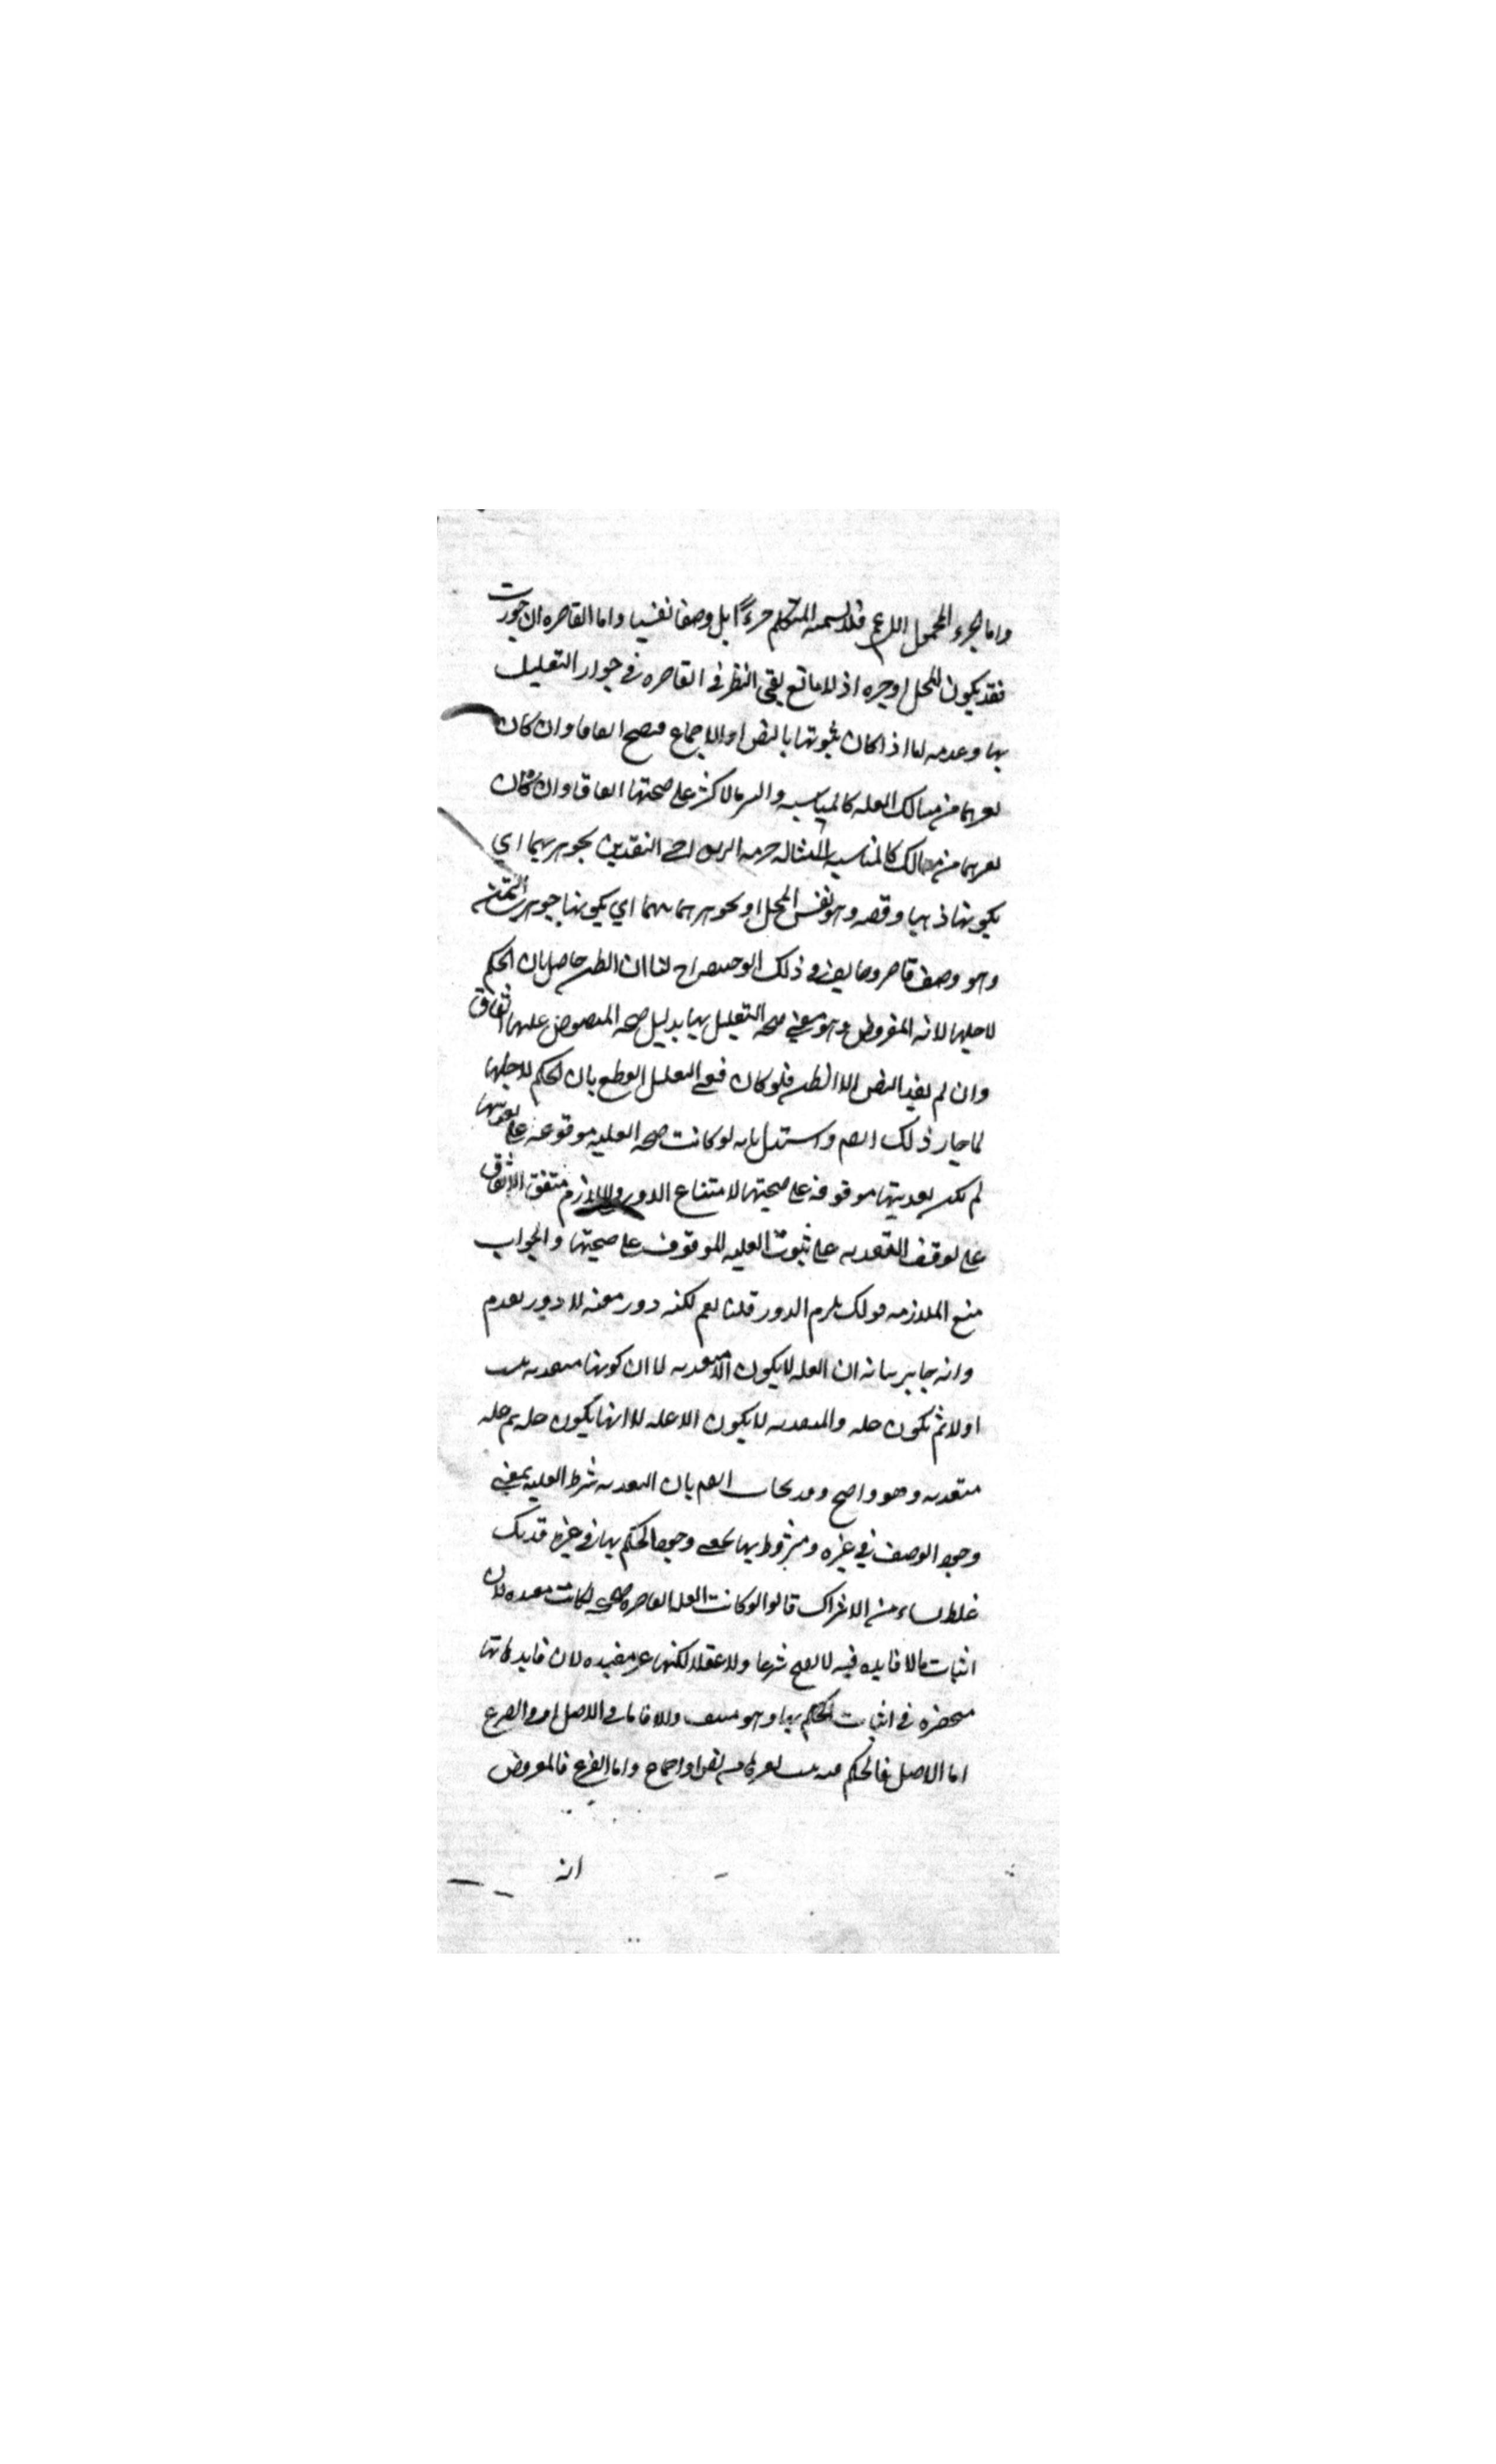 واما الجزء المحمول الاعم فلا يسميه المتكلم جزءًا بل وصفا نفسيا واما القاصره ان جوزت
فقد يكون المحل او جزءه اذ لا مانع بقي النظر في القاصره في جواز التعليل
بها وعدمه اما اذا كان ثبوتها بالنص او الاجماع فيصح اتفاقا وان كان
بغيرهما من مسالك العله كالمناسبه والسبر فالاكثر على صحتها اتفاقا وان كان
بغيرهما من مسالك كالمناسبه مثاله حرمه الربوا في النقدين بجوهريهما اي
بكونهما ذهبا وفضه وهو نفس المحل او بجوهريتهما اي بكونهما جوهر الثمنيه
وهو وصف قاصر وخالف في ذلك ابو حنيفه لنا ان الظن حاصل بان الحكم
لاجلها لانه المفروض وهو معنى صحه التعليل بها بدليل صحه المنصوص عليها اتفاق
وان لم يفد النص الا الظن فلو كان معنى التعليل القطع بان الحكم لاجلها
لما جاز ذلك واستدل بانه لو كانت صحه العليه موقوفه على تعديتها
لم تكن تعديتها موقوفه على صحتها لامتناع الدور واللازم متفق الاتفاق
على توقف التعديه على ثبوت العليه الموقوف على صحتها والجواب
منع الملازمه قولك يلزم الدور قلنا نعم لكنه دور معيه لا دور تقدم
وانه جايز بيانه ان العله لا يكون الا متعديه لا ان كونها متعديه يثبت
اولا ثم تكون عله والمتعديه لا يكون الا عله لا انها يكون عله ثم عله
متعديه وهو واضح وقد يجاب بان التعديه شرط العليه بمعنى
وجود الوصف في غيره ومشروط بها بمعنى وجود الحكم بها في غيره فذلك
غلط نشاء من الاشتراك قالوا لو كانت العله القاصره صحيحه لكانت مفيده لان
اثبات ما لا فايده فيه لا يصح شرعا ولا عقلا لكنها غير مفيده لان فايدتها
منحصره في اثبات الحكم بها وهو منتف والا فاما في الاصل او في الفرع
اما الاصل فالحكم فيه يثبت بغيرها من نص او اجماع واما الفرع فالمفروض
انه